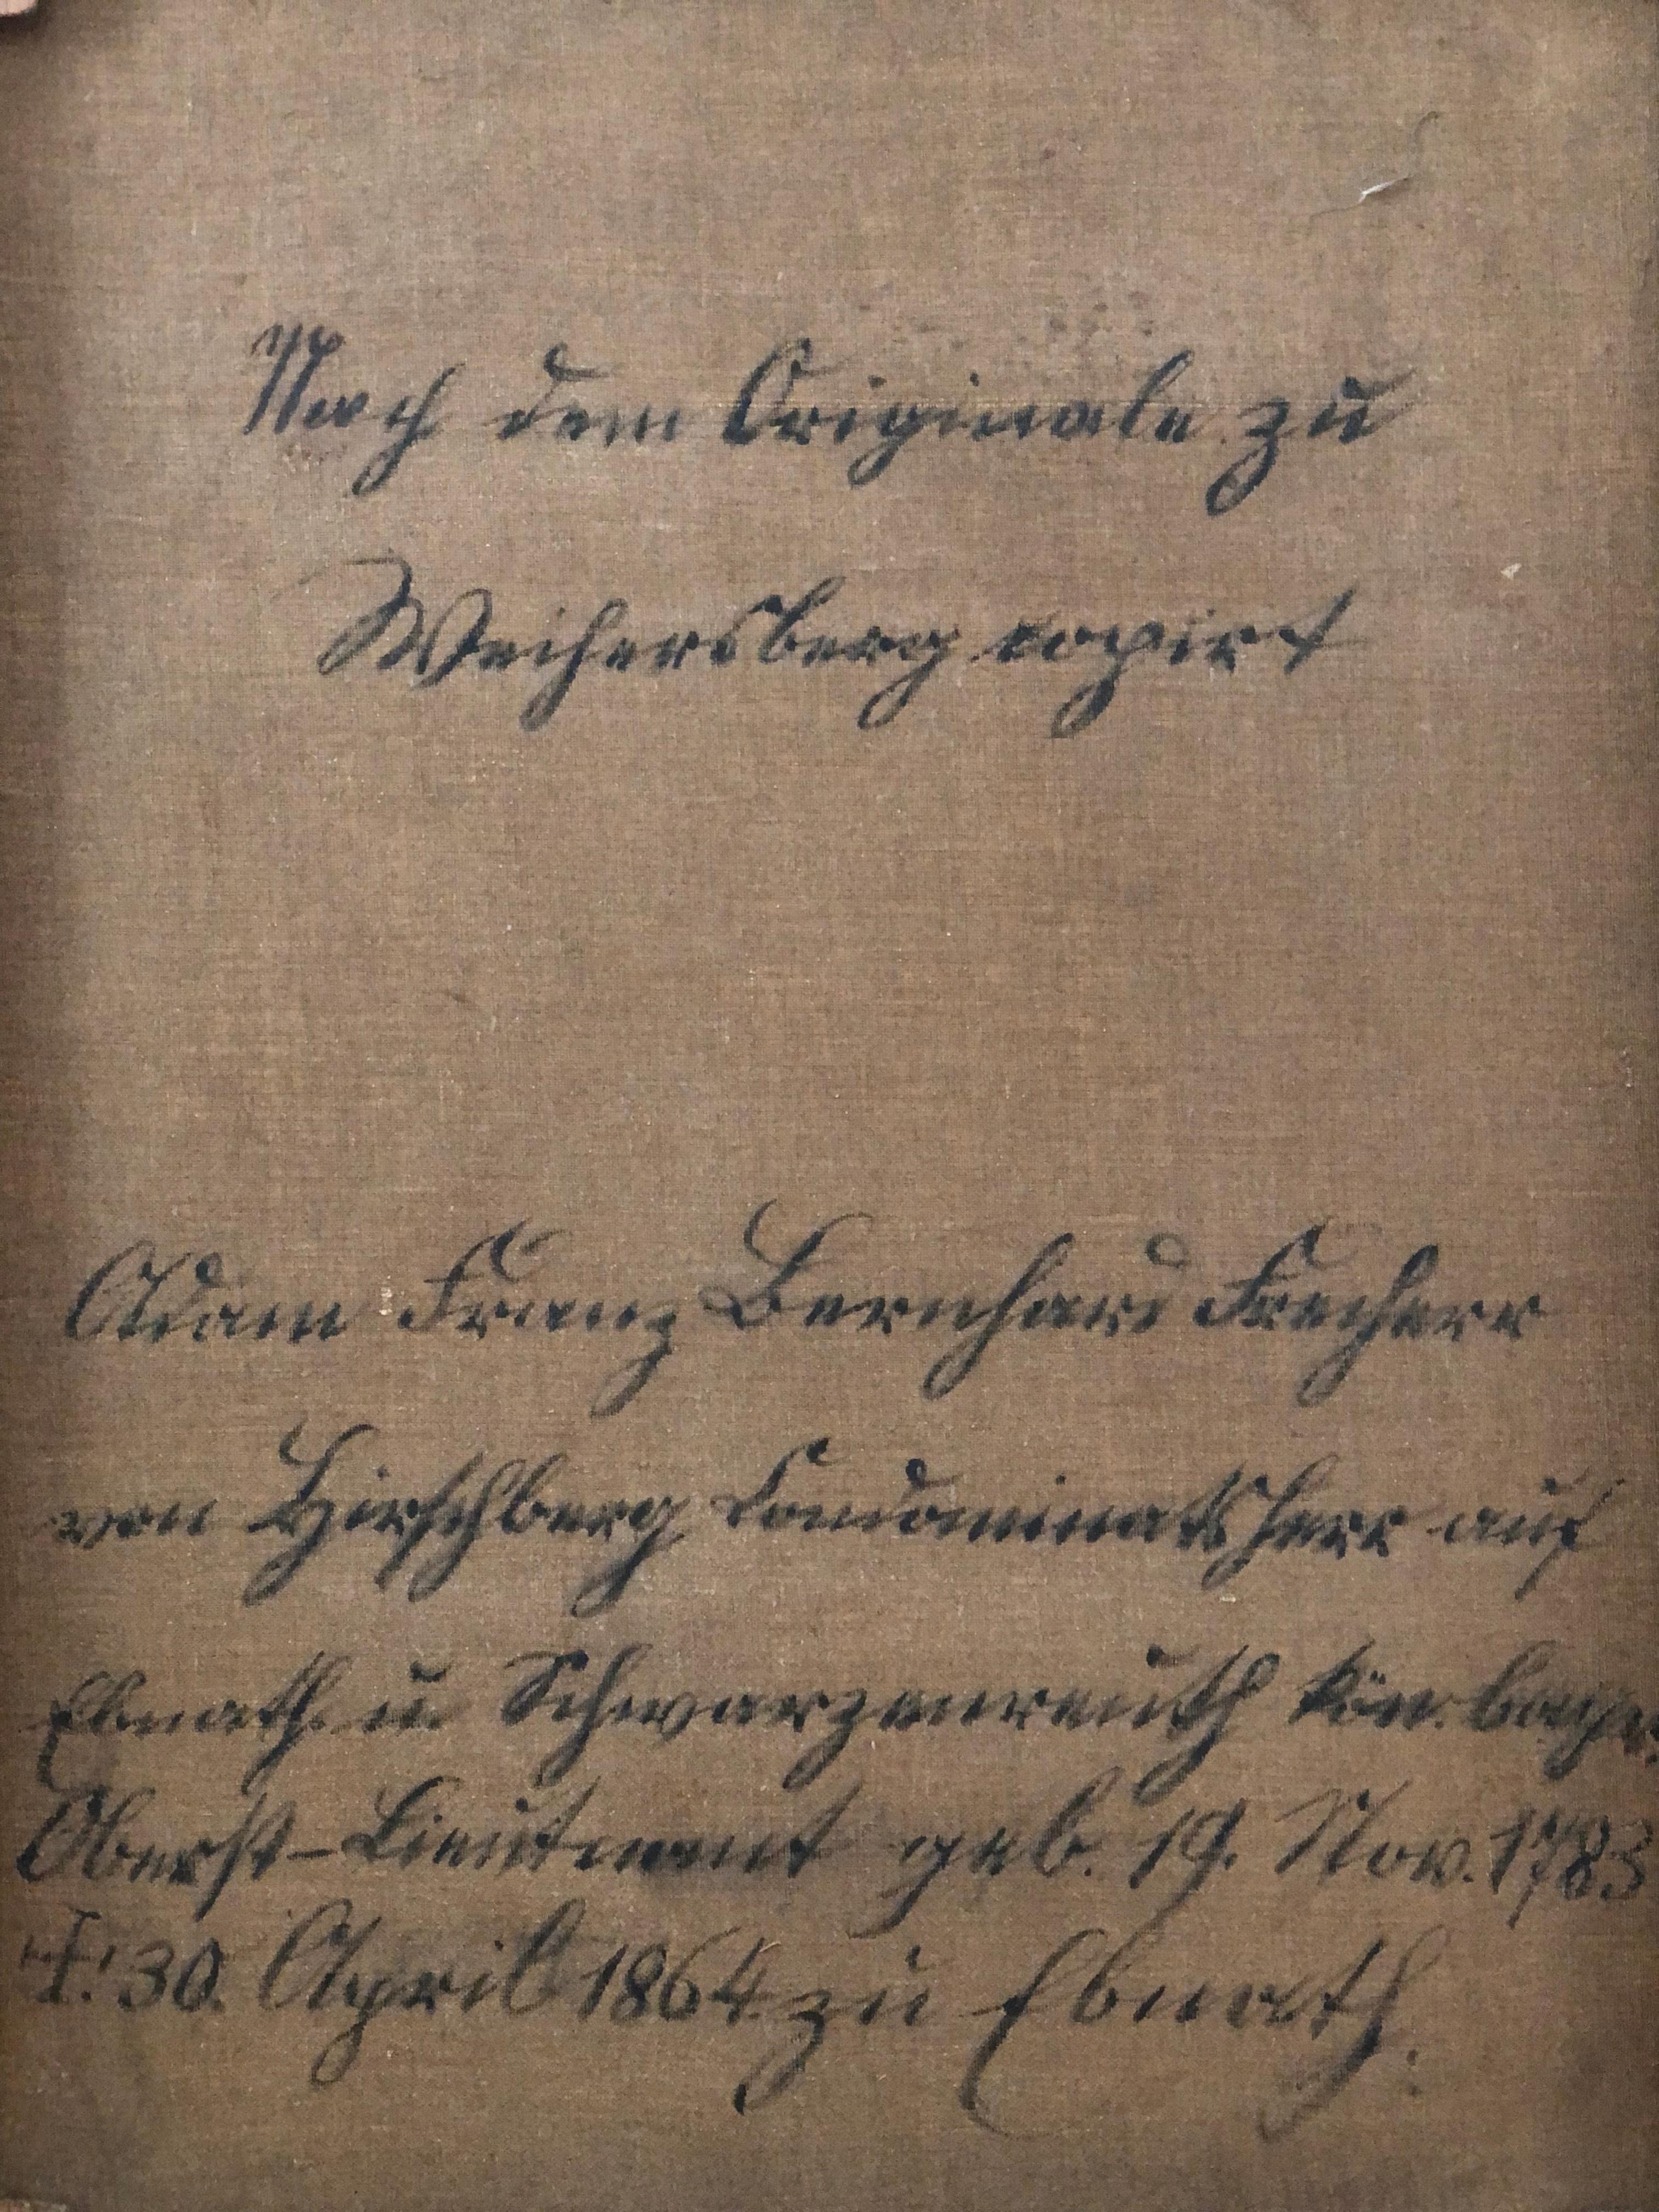 Nach dem Originale zu
Weihersberg copirt
Adam Franz Bernhard Freiherr
von Hirschberg Condominatsherr auf
Ebnath u Schwarzenreuth kön. bayer.
Oberst-Lieutenant geb. 19. Nov. 1783
†. 30. April 1864 zu Ebnath.